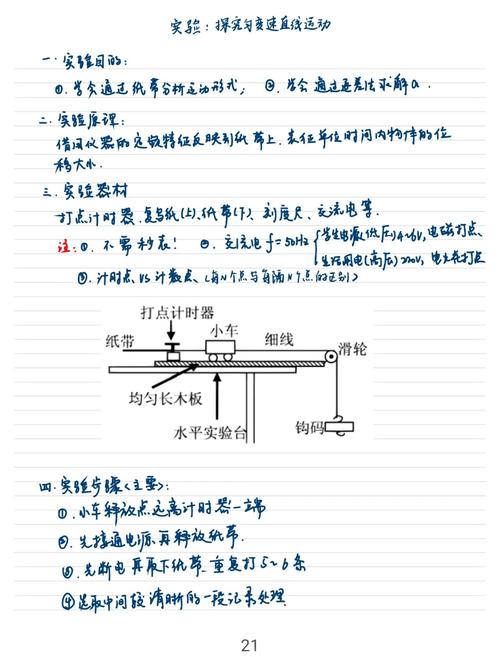 实验：探究匀变速直线运动
一. 实验目的：
①. 学会通过纸带分析运动形式； ②. 学会通过逐差法求解a.
二. 实验原理：
借用仪器的定数特征反映到纸带上，表征单位时间内物体的位
移大小.
三. 实验器材
打点计时器、复写纸(上)、纸带(下)、刻度尺、交流电等.
注：①. 不需秒表！ ②. 交流电 f=50Hz { 学生电源(低压)4~6V, 电磁打点.
生活用电(高压)220V, 电火花打点
③. 计时点 VS 计数点. (每N个点与每隔N个点的区别)
打点计时器
纸带
小车
细线
滑轮
均匀长木板
水平实验台
钩码
四. 实验步骤<主要>:
①. 小车释放点远离计时器一端
②. 先接通电源再释放纸带.
③. 先断电再取下纸带. 重复打5~6条
④ 选取中间较清晰的一段记录处理.
21